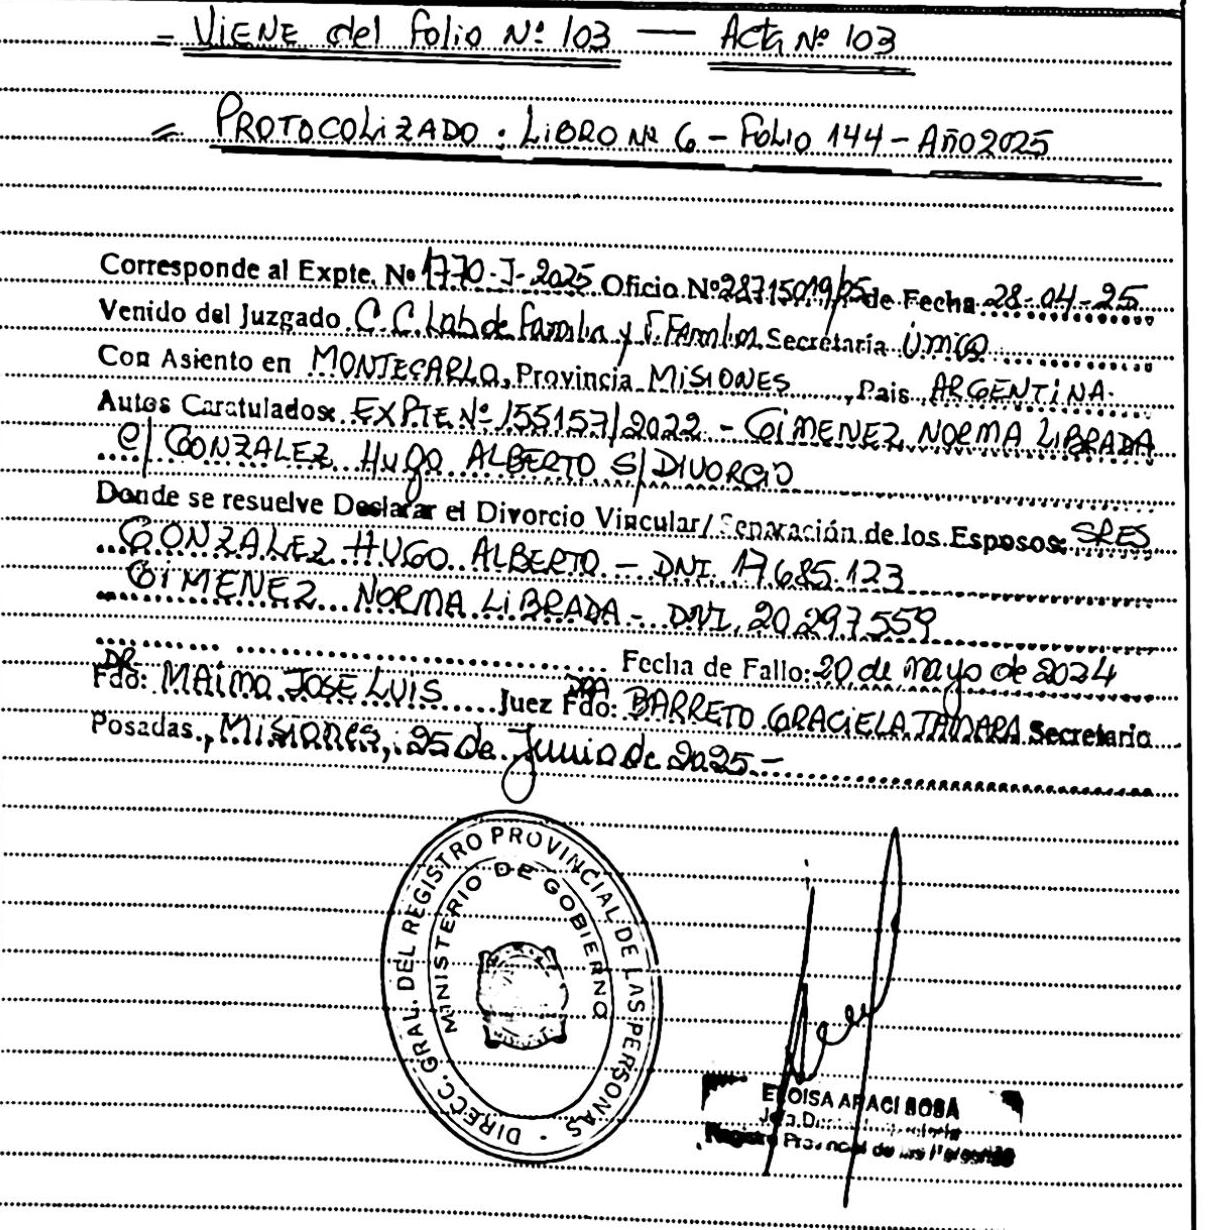 = VIENE del folio Nº 103 — Acta Nº 103
= PROTOCOLIZADO: LIBRO Nº 6 - Folio 144 - Año 2025
Corresponde al Expte. Nº 1770-J-2025 Oficio Nº 28715019/25 de Fecha 28-04-25
Venido del Juzgado C.C. Lab de Familia y V. Familiar Secretaría Única
Con Asiento en MONTECARLO, Provincia MISIONES, Pais ARGENTINA.
Autos Caratulados: EXPTE Nº 155157/2022 - GIMENEZ NORMA LIBRADA
C/ GONZALEZ HUGO ALBERTO S/ DIVORCIO
Donde se resuelve Declarar el Divorcio Vincular/Separación de los Esposos: SRES
GONZALEZ HUGO ALBERTO - DNI. 17.685.123
GIMENEZ NORMA LIBRADA - DNI. 20.297.559
Fecha de Fallo: 20 de mayo de 2024
Fdo: DR MAIMO JOSE LUIS Juez Fdo: DRA BARRETO GRACIELA TAMARA Secretario
Posadas, Misiones, 25 de Junio de 2025.-
DIRECC. GRAL. DEL REGISTRO PROVINCIAL DE LAS PERSONAS
MINISTERIO DE GOBIERNO
ELOISA ARACI SOSA
Registro Provincial de las Personas